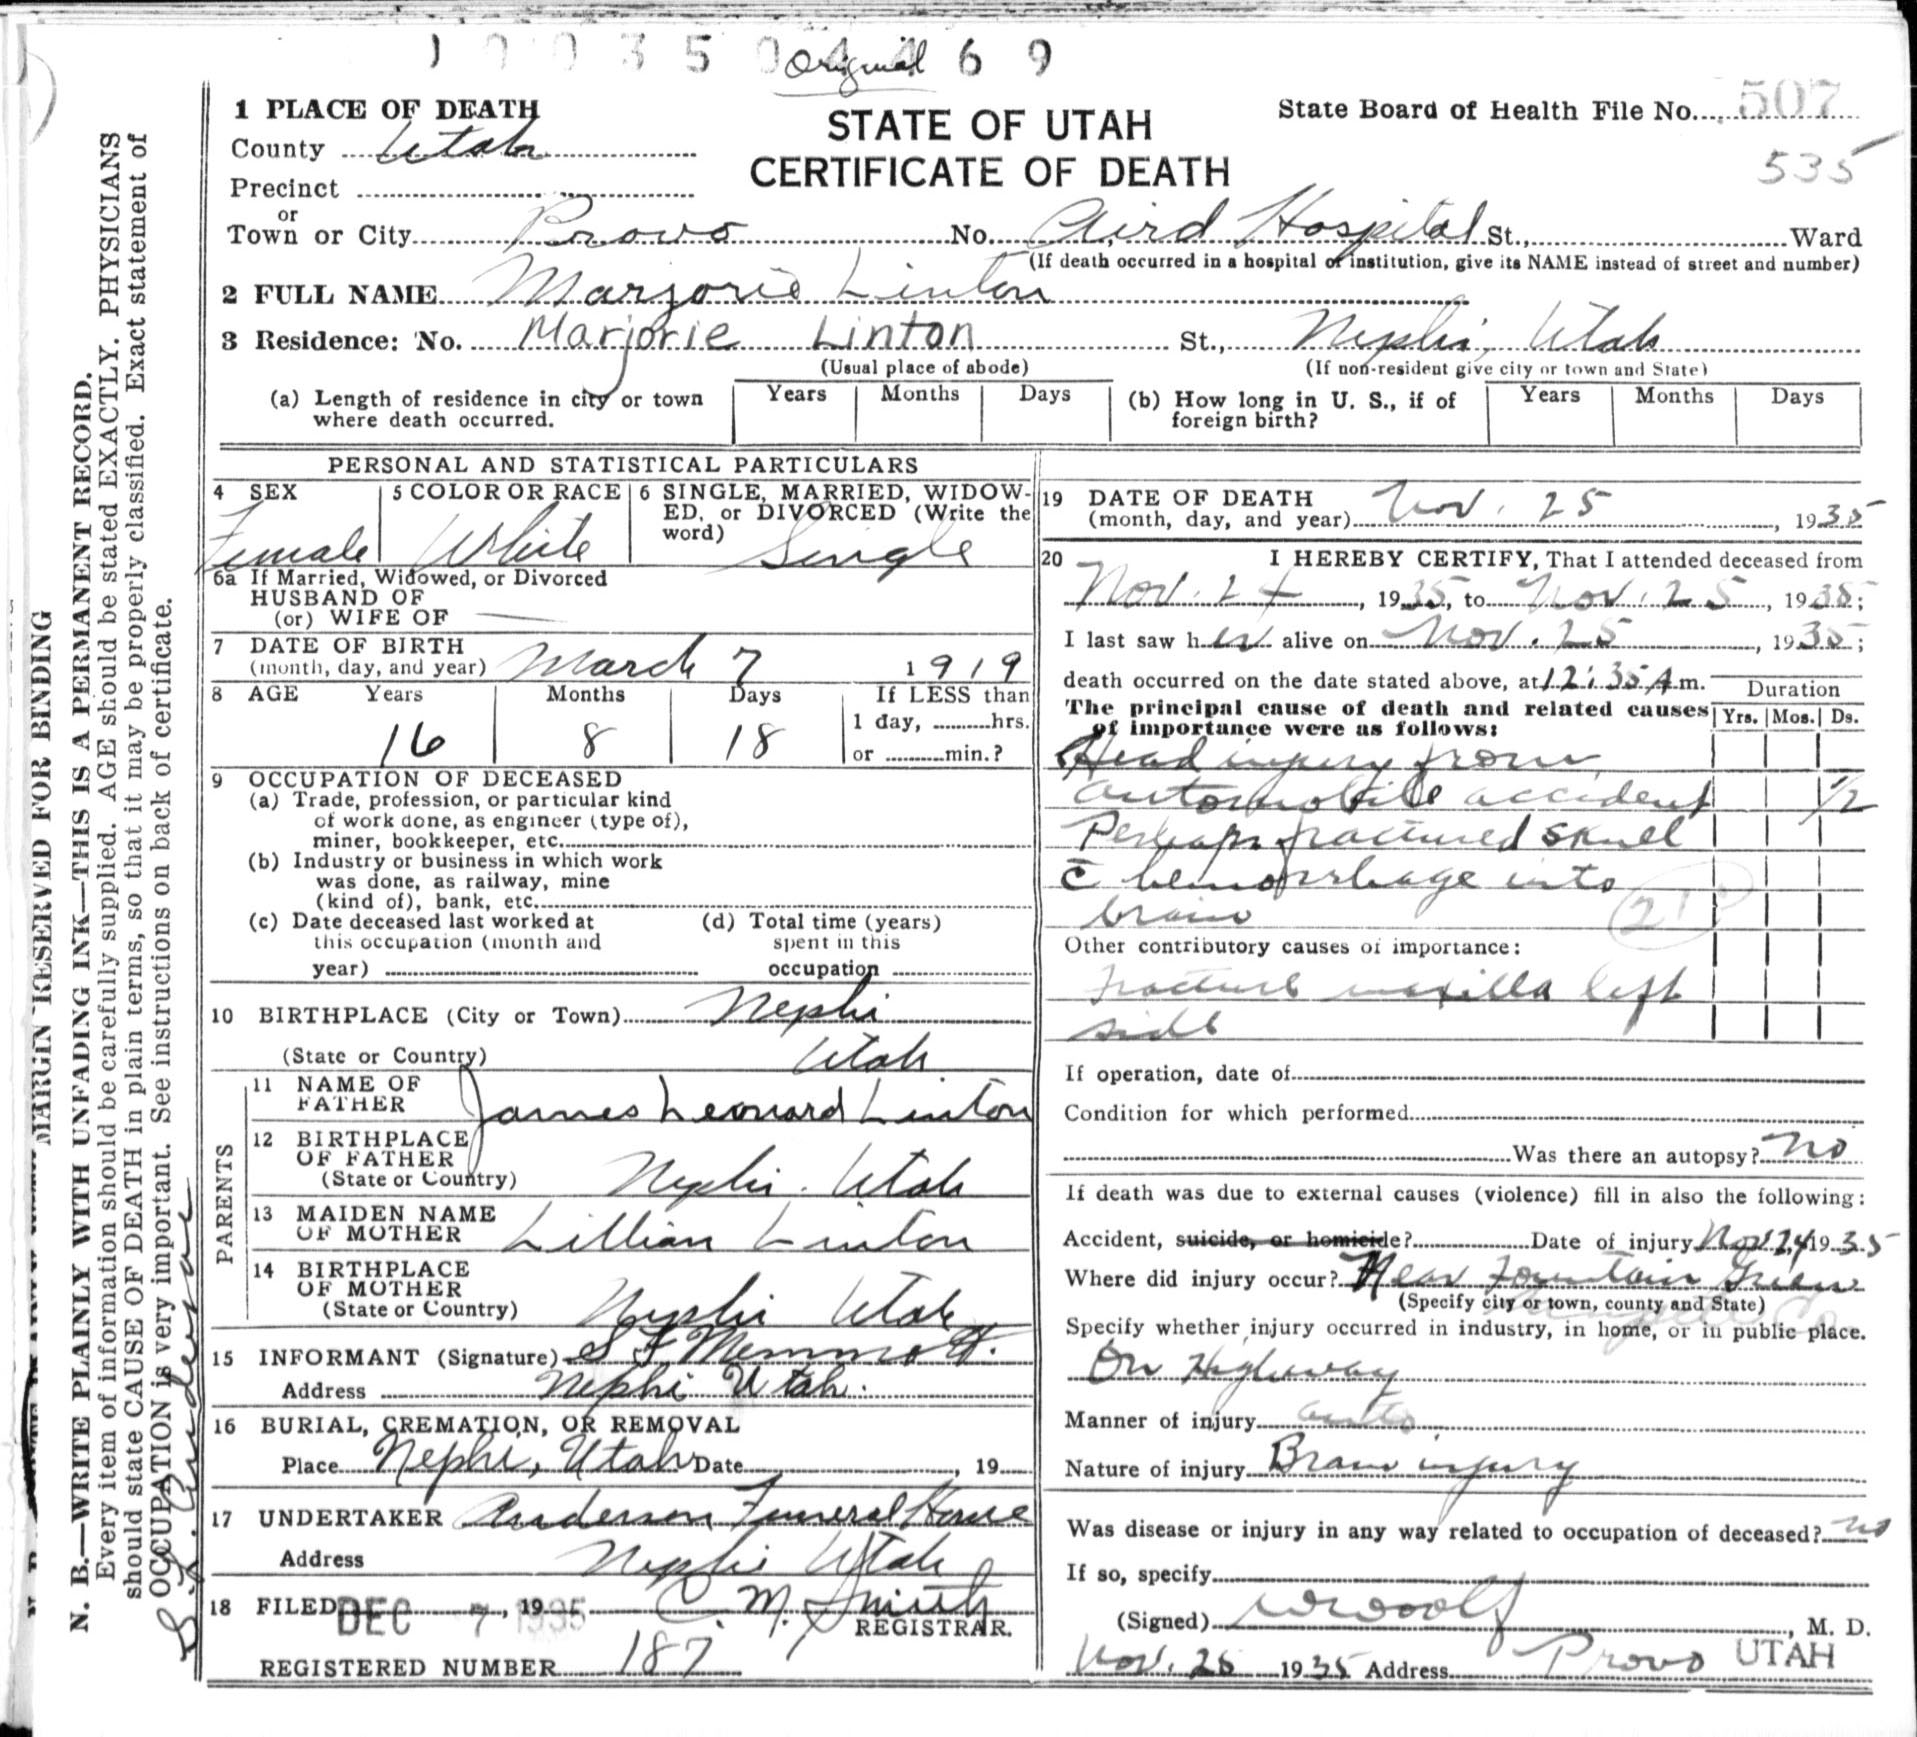 1 0 0 3 5 0 4 4 6 9
Original
1 PLACE OF DEATH
STATE OF UTAH
CERTIFICATE OF DEATH
State Board of Health File No. 507
535
County Utah
Precinct
or
Town or City Provo No. Aird Hospital St., Ward
(If death occurred in a hospital or institution, give its NAME instead of street and number)
2 FULL NAME Marjorie Linton
3 Residence: No. Marjorie Linton St., Nephi, Utah
(Usual place of abode) (If non-resident give city or town and State)
(a) Length of residence in city or town where death occurred. Years Months Days (b) How long in U. S., if of foreign birth? Years Months Days
PERSONAL AND STATISTICAL PARTICULARS
4 SEX
Female
5 COLOR OR RACE
White
6 SINGLE, MARRIED, WIDOW-
ED, or DIVORCED (Write the
word) Single
6a If Married, Widowed, or Divorced
HUSBAND OF
(or) WIFE OF
7 DATE OF BIRTH
(month, day, and year) March 7 1919
8 AGE Years Months Days If LESS than
1 day, hrs.
16 8 18 or min.?
9 OCCUPATION OF DECEASED
(a) Trade, profession, or particular kind
of work done, as engineer (type of),
miner, bookkeeper, etc.
(b) Industry or business in which work
was done, as railway, mine
(kind of), bank, etc.
(c) Date deceased last worked at
this occupation (month and
year)
(d) Total time (years)
spent in this
occupation
10 BIRTHPLACE (City or Town) Nephi
(State or Country) Utah
PARENTS
11 NAME OF
FATHER James Leonard Linton
12 BIRTHPLACE
OF FATHER
(State or Country) Nephi. Utah
13 MAIDEN NAME
OF MOTHER Lillian Linton
14 BIRTHPLACE
OF MOTHER
(State or Country) Nephi Utah
15 INFORMANT (Signature) S F Memmott.
Address Nephi Utah.
16 BURIAL, CREMATION, OR REMOVAL
Place Nephi, Utah Date , 19
17 UNDERTAKER Anderson Funeral House
Address Nephi Utah
18 FILED DEC 7 1935, 19 C. M. Smith
REGISTRAR.
REGISTERED NUMBER 187
19 DATE OF DEATH
(month, day, and year) Nov. 25, 1935
20 I HEREBY CERTIFY, That I attended deceased from
Nov. 24, 1935, to Nov. 25, 1935;
I last saw her alive on Nov. 25, 1935;
death occurred on the date stated above, at 12:35 A m.
Duration
The principal cause of death and related causes
of importance were as follows:
Yrs. Mos. Ds.
Head injury from
automobile accident 1/2
Perhaps fractured skull
c̄ hemorrhage into
brain
Other contributory causes of importance:
Fracture maxilla left
side
If operation, date of
Condition for which performed
Was there an autopsy? no
If death was due to external causes (violence) fill in also the following:
Accident, suicide, or homicide? Date of injury Nov 24, 1935
Where did injury occur? Near Fountain Green
(Specify city or town, county and State)
Specify whether injury occurred in industry, in home, or in public place.
On Highway
Manner of injury auto
Nature of injury Brain injury
Was disease or injury in any way related to occupation of deceased? no
If so, specify
(Signed) , M. D.
Nov. 25 1935 Address Provo UTAH
MARGIN RESERVED FOR BINDING
N. B.—WRITE PLAINLY WITH UNFADING INK—THIS IS A PERMANENT RECORD.
Every item of information should be carefully supplied. AGE should be stated EXACTLY. PHYSICIANS
should state CAUSE OF DEATH in plain terms, so that it may be properly classified. Exact statement of
OCCUPATION is very important. See instructions on back of certificate.